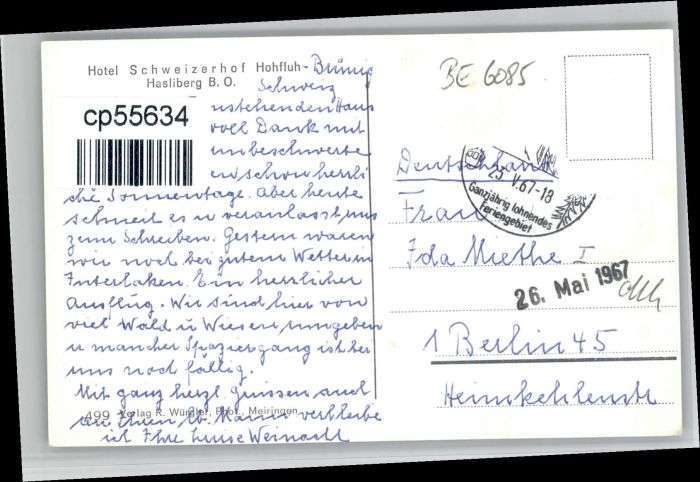 Hotel Schweizerhof Hohfluh-Brünig
Hasliberg B. O.
Schweiz
cp55634
BE 6085
nstehenden Haus
voll Dank und
unbeschwerte
und schon herrli-
che Sonnentage. Aber heute
schneit es u veranlasst uns
zum Schreiben. Gestern waren
wir noch bei gutem Wetter in
Interlaken. Ein herrlicher
Ausflug. Wir sind hier von
viel Wald u Wiesen umgeben
u mancher Spaziergang ist bei
uns noch fällig.
Mit ganz herzl. Grüssen auch
an Ihren lb. Mann verbleibe
ich Ihre
499 Verlag R. Würgler, Phot., Meiringen
25. V. 67-18
Ganzjährig lohnendes
Feriengebiet
Deutschland
Frau
Ida Miethe I
26. Mai 1967
1 Berlin 45
Heimkehlenstr